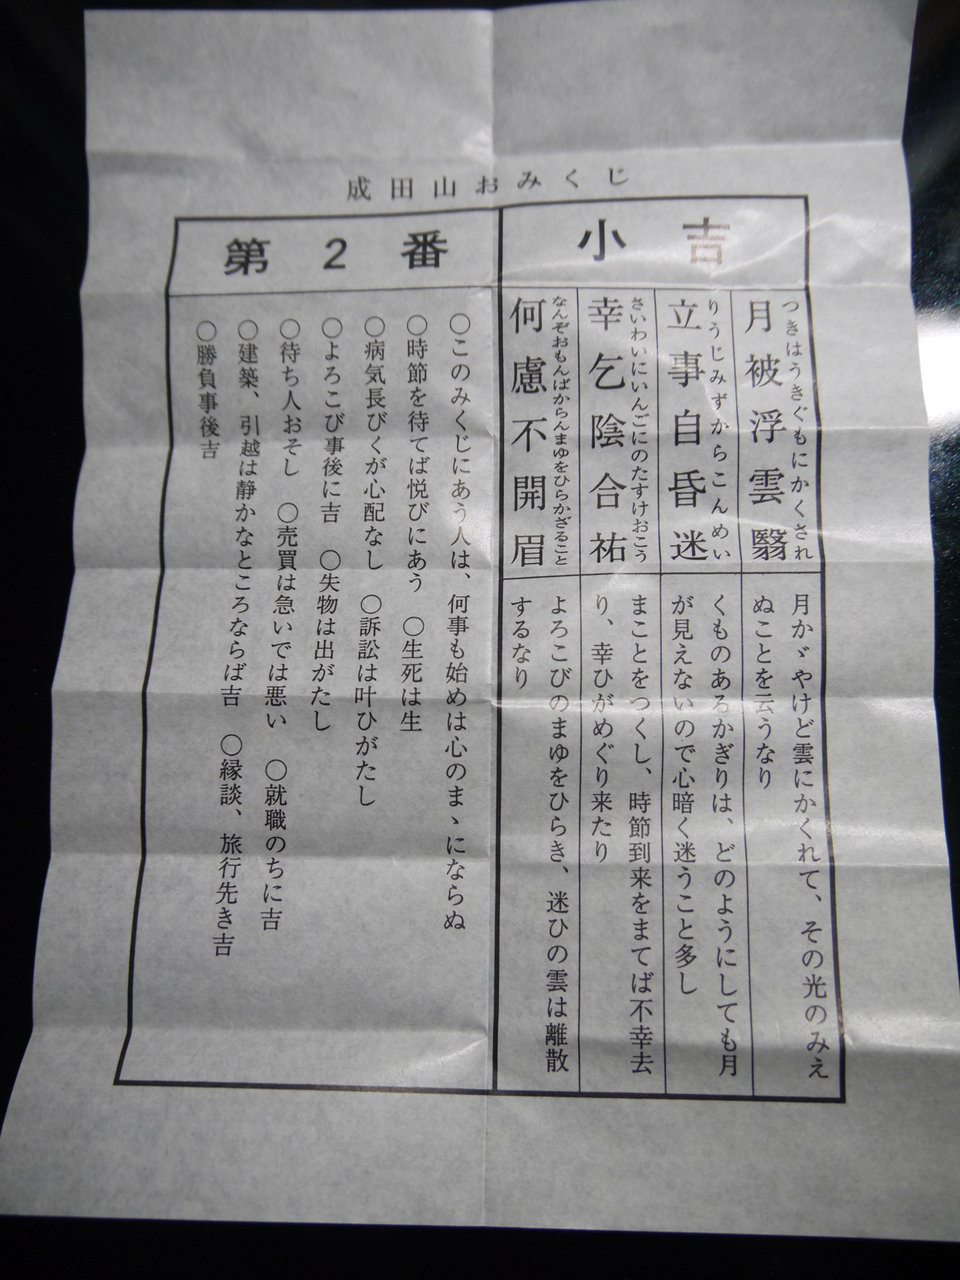 成田山おみくじ
第２番
小吉
月被浮雲翳
つきはうきぐもにかくされ
月かゞやけど雲にかくれて、その光のみえ
ぬことを云うなり
立事自昏迷
りうじみずからこんめい
くものあるかぎりは、どのようにしても月
が見えないので心暗く迷うこと多し
幸乞陰合祐
さいわいにいんごにのたすけおこう
まことをつくし、時節到来をまてば不幸去
り、幸ひがめぐり来たり
何慮不開眉
なんぞおもんばからんまゆをひらかざること
よろこびのまゆをひらき、迷ひの雲は離散
するなり
○このみくじにあう人は、何事も始めは心のまゝにならぬ
○時節を待てば悦びにあう ○生死は生
○病気長びくが心配なし ○訴訟は叶ひがたし
○よろこび事後に吉 ○失物は出がたし
○待ち人おそし ○売買は急いでは悪い ○就職のちに吉
○建築、引越は静かなところならば吉 ○縁談、旅行先き吉
○勝負事後吉